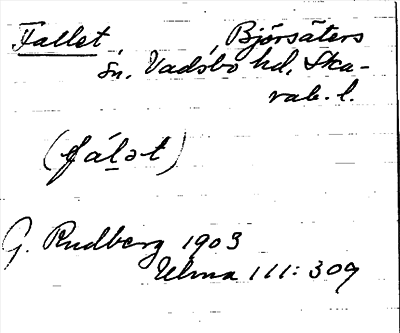 Fallet, Björsäters
sn. Vadsbo hd. Ska-
rab. l.
(fálət)
G. Rudberg 1903
Ulma 111:309